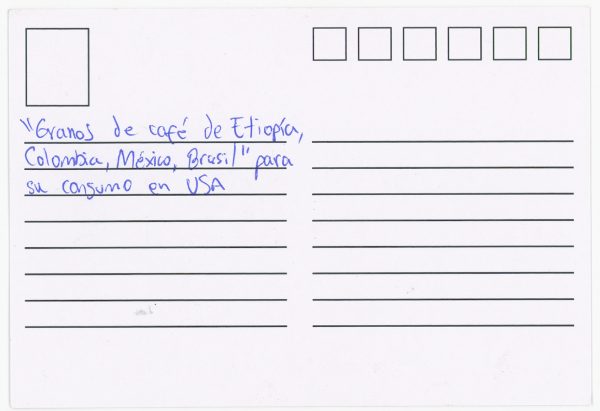 "Granos de café de Etiopía,
Colombia, México, Brasil" para
su consumo en USA